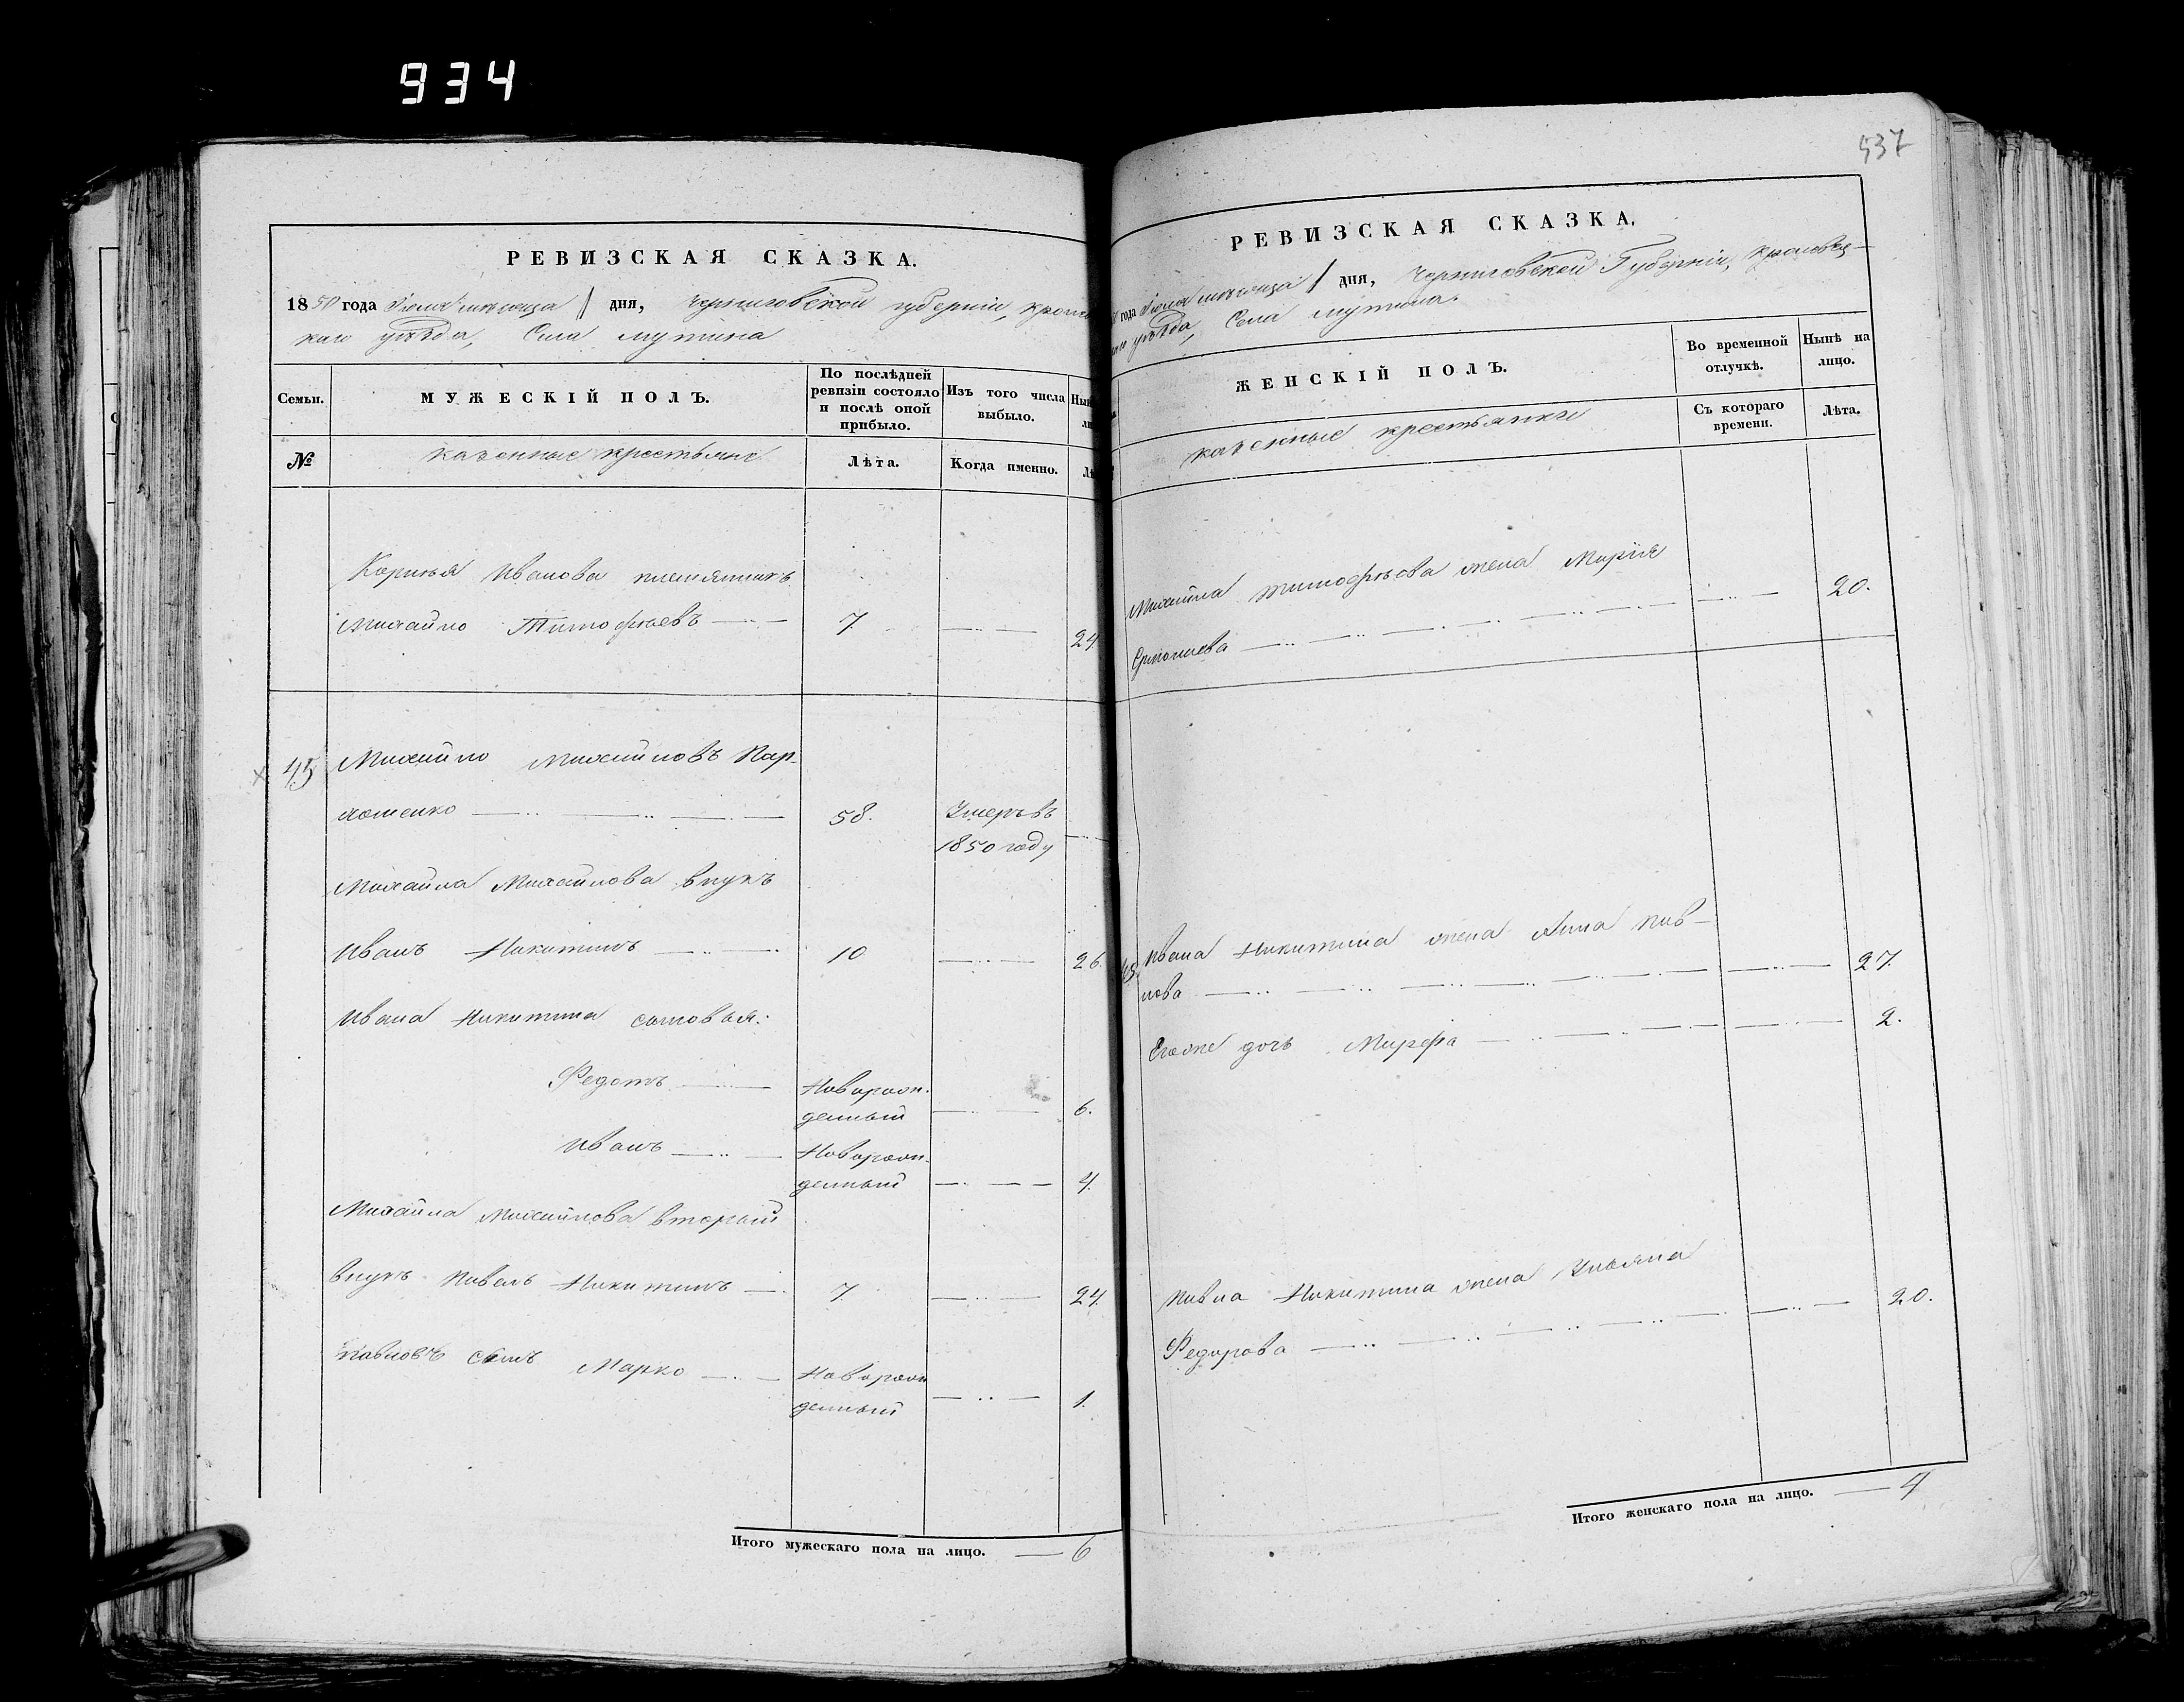 934
РЕВИЗСКАЯ СКАЗКА.
1850 года Іюля мѣсяца дня, Черниговской губерніи, Кроле
каго уѣзда, Села Мутина
Семьи.
МУЖЕСКІЙ ПОЛЪ.
По послѣдней ревизіи состояло и послѣ оной прибыло.
Изъ того числа выбыло.
№
казенные крестьяне
Лѣта.
Когда именно.
Корнѣя Иванова племянникъ
Михайло Тимофѣевъ 7. 24.
45 Михайло Михайловъ Пар-
хоменко 58. Умеръ въ
1850 году
Михайла Михайлова внукъ
Иванъ Никитинъ 10 26.
Ивана Никитина сыновья:
Федотъ Новорож-
денный 6.
Иванъ Новорож-
денный 4.
Михайла Михайлова вторый
внукъ Павелъ Никитинъ 7. 24.
Павловъ сынъ Марко Новорож
денный 1.
Итого мужескаго пола на лицо. 6
537
РЕВИЗСКАЯ СКАЗКА.
года Іюля мѣсяца дня, Черниговской Губерніи, Кролевец-
уѣзда, Села Мутина.
ЖЕНСКІЙ ПОЛЪ.
Во временной отлучкѣ.
Нынѣ на лицо.
казенные крестьянки
Съ котораго времени.
Лѣта.
Михайла Тимофѣева жена Марія
20.
45 Ивана Никитина жена Анна Пав-
лова 27.
Егоже дочь Марфа 2.
Павла Никитина жена Ульяна
Федорова 20.
Итого женскаго пола на лицо. 4